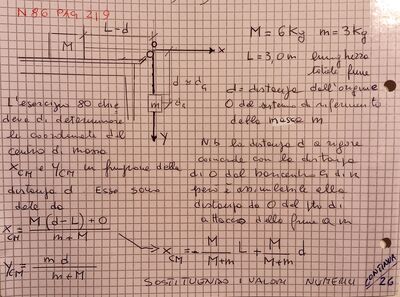 N 86 PAG 219
L-d
M
x
d ≅ dG
m
dG
y
M = 6 Kg m = 3 Kg
L = 3,0 m lunghezza
totale fune
d = distanza dall'origine
O del sistema di riferimento
della massa m
L'esercizio 80 chie
deva di determinare
le coordinate del
centro di massa
XCM e YCM in funzione della
distanza d Esse sono
date da
Nb la distanza d a rigore
coincide con la distanza
di O dal baricentro G di m
però è assimilabile alla
distanza da O del pto di
attacco della fune a m
XCM = M(d-L)+0 / m+M
XCM = - M/M+m L + M/M+m d
YCM = m d / m+M
SOSTITUENDO I VALORI NUMERICI
CONTINUA
26